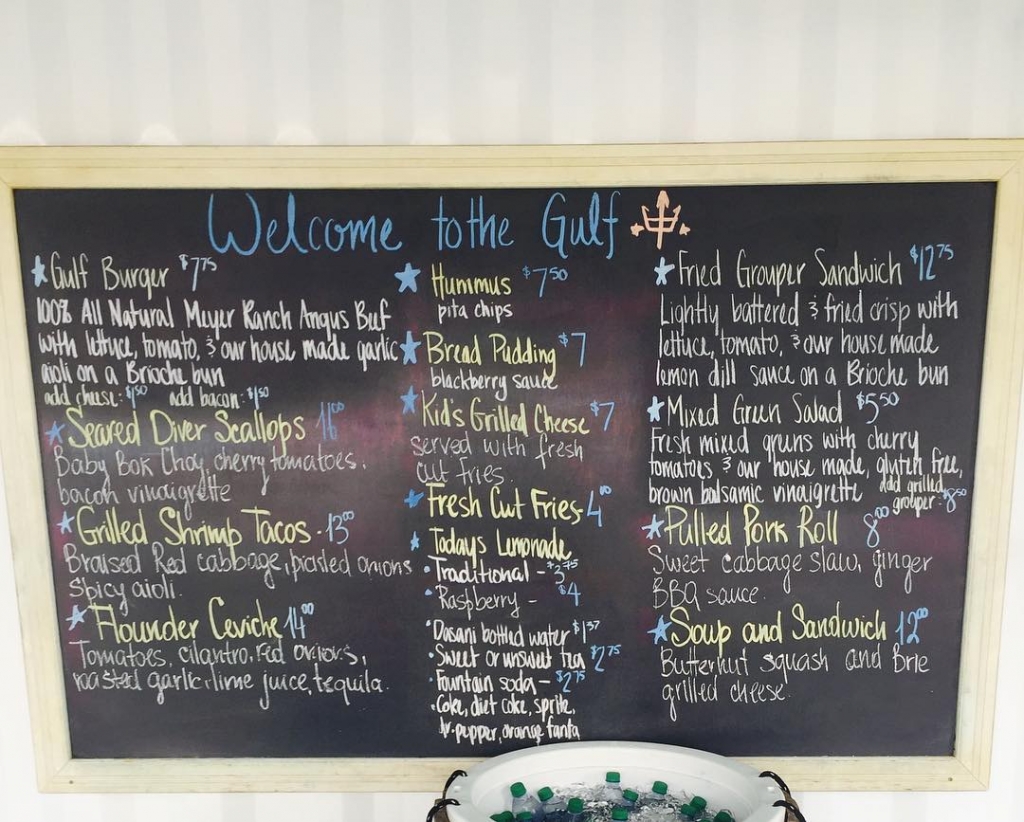 Welcome to the Gulf
Gulf Burger $7.75
100% All Natural Meyer Ranch Angus Beef
with lettuce, tomato, & our house made garlic
aioli on a Brioche bun
add cheese: $1.50 add bacon: $1.50
Seared Diver Scallops 16.00
Baby Bok Choy, cherry tomatoes,
bacon vinaigrette
Grilled Shrimp Tacos - 13.00
Braised Red cabbage, pickled onions
Spicy aioli.
Flounder Ceviche 14.00
Tomatoes, cilantro, red onions,
roasted garlic, lime juice, tequila.
Hummus $7.50
pita chips
Bread Pudding $7
blackberry sauce
Kid's Grilled Cheese $7
served with fresh
cut fries.
Fresh Cut Fries - 4.00
Todays Lemonade
• Traditional - $3.75
• Raspberry - $4
• Dasani bottled water $1.37
• Sweet or unsweet tea $2.75
• Fountain soda - $2.75
• Coke, diet coke, sprite,
dr. pepper, orange fanta
Fried Grouper Sandwich $12.75
Lightly battered & fried crisp with
lettuce, tomato, & our house made
lemon dill sauce on a Brioche bun
Mixed Green Salad $5.50
Fresh mixed greens with cherry
tomatoes & our house made, gluten free,
brown balsamic vinaigrette add grilled
grouper - $8.50
Pulled Pork Roll 8.00
Sweet cabbage slaw, ginger
BBQ sauce.
Soup and Sandwich 12.00
Butternut squash and Brie
grilled cheese.